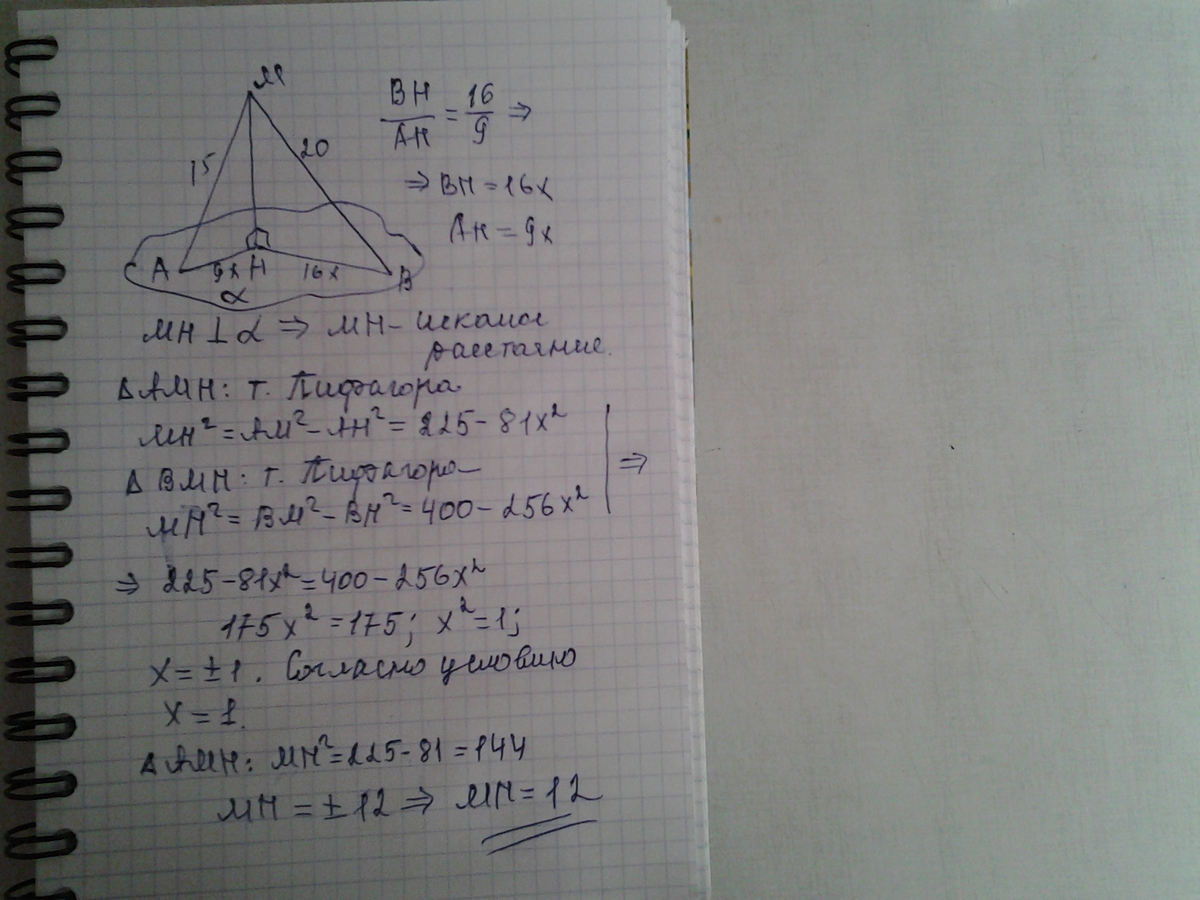 М
15
20
A
9x
H
16x
B
α
BH/AH = 16/9 ⇒
⇒ BH = 16x
AH = 9x
MH ⊥ α ⇒ MH - искомое
расстояние.
Δ AMH: т. Пифагора
MH² = AM² - AH² = 225 - 81x²
Δ BMH: т. Пифагора
MH² = BM² - BH² = 400 - 256x²
⇒
⇒ 225 - 81x² = 400 - 256x²
175x² = 175; x² = 1;
x = ± 1. Согласно условию
x = 1.
Δ AMH: MH² = 225 - 81 = 144
MH = ± 12 ⇒ MH = 12